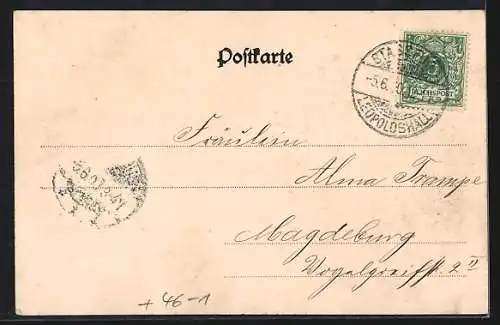 Postkarte
STASSF
-5.6.
LEOPOLDSHALL
REICHSPOST
5
Fräulein
Alma Trampe
Magdeburg
Vogelgreifstr. 2 II
+ 46-1